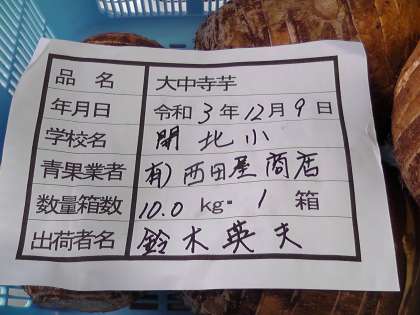 品名 大中寺芋
年月日 令和3年12月9日
学校名 開北小
青果業者 有)西田屋商店
数量箱数 10.0 kg・1箱
出荷者名 鈴木英夫